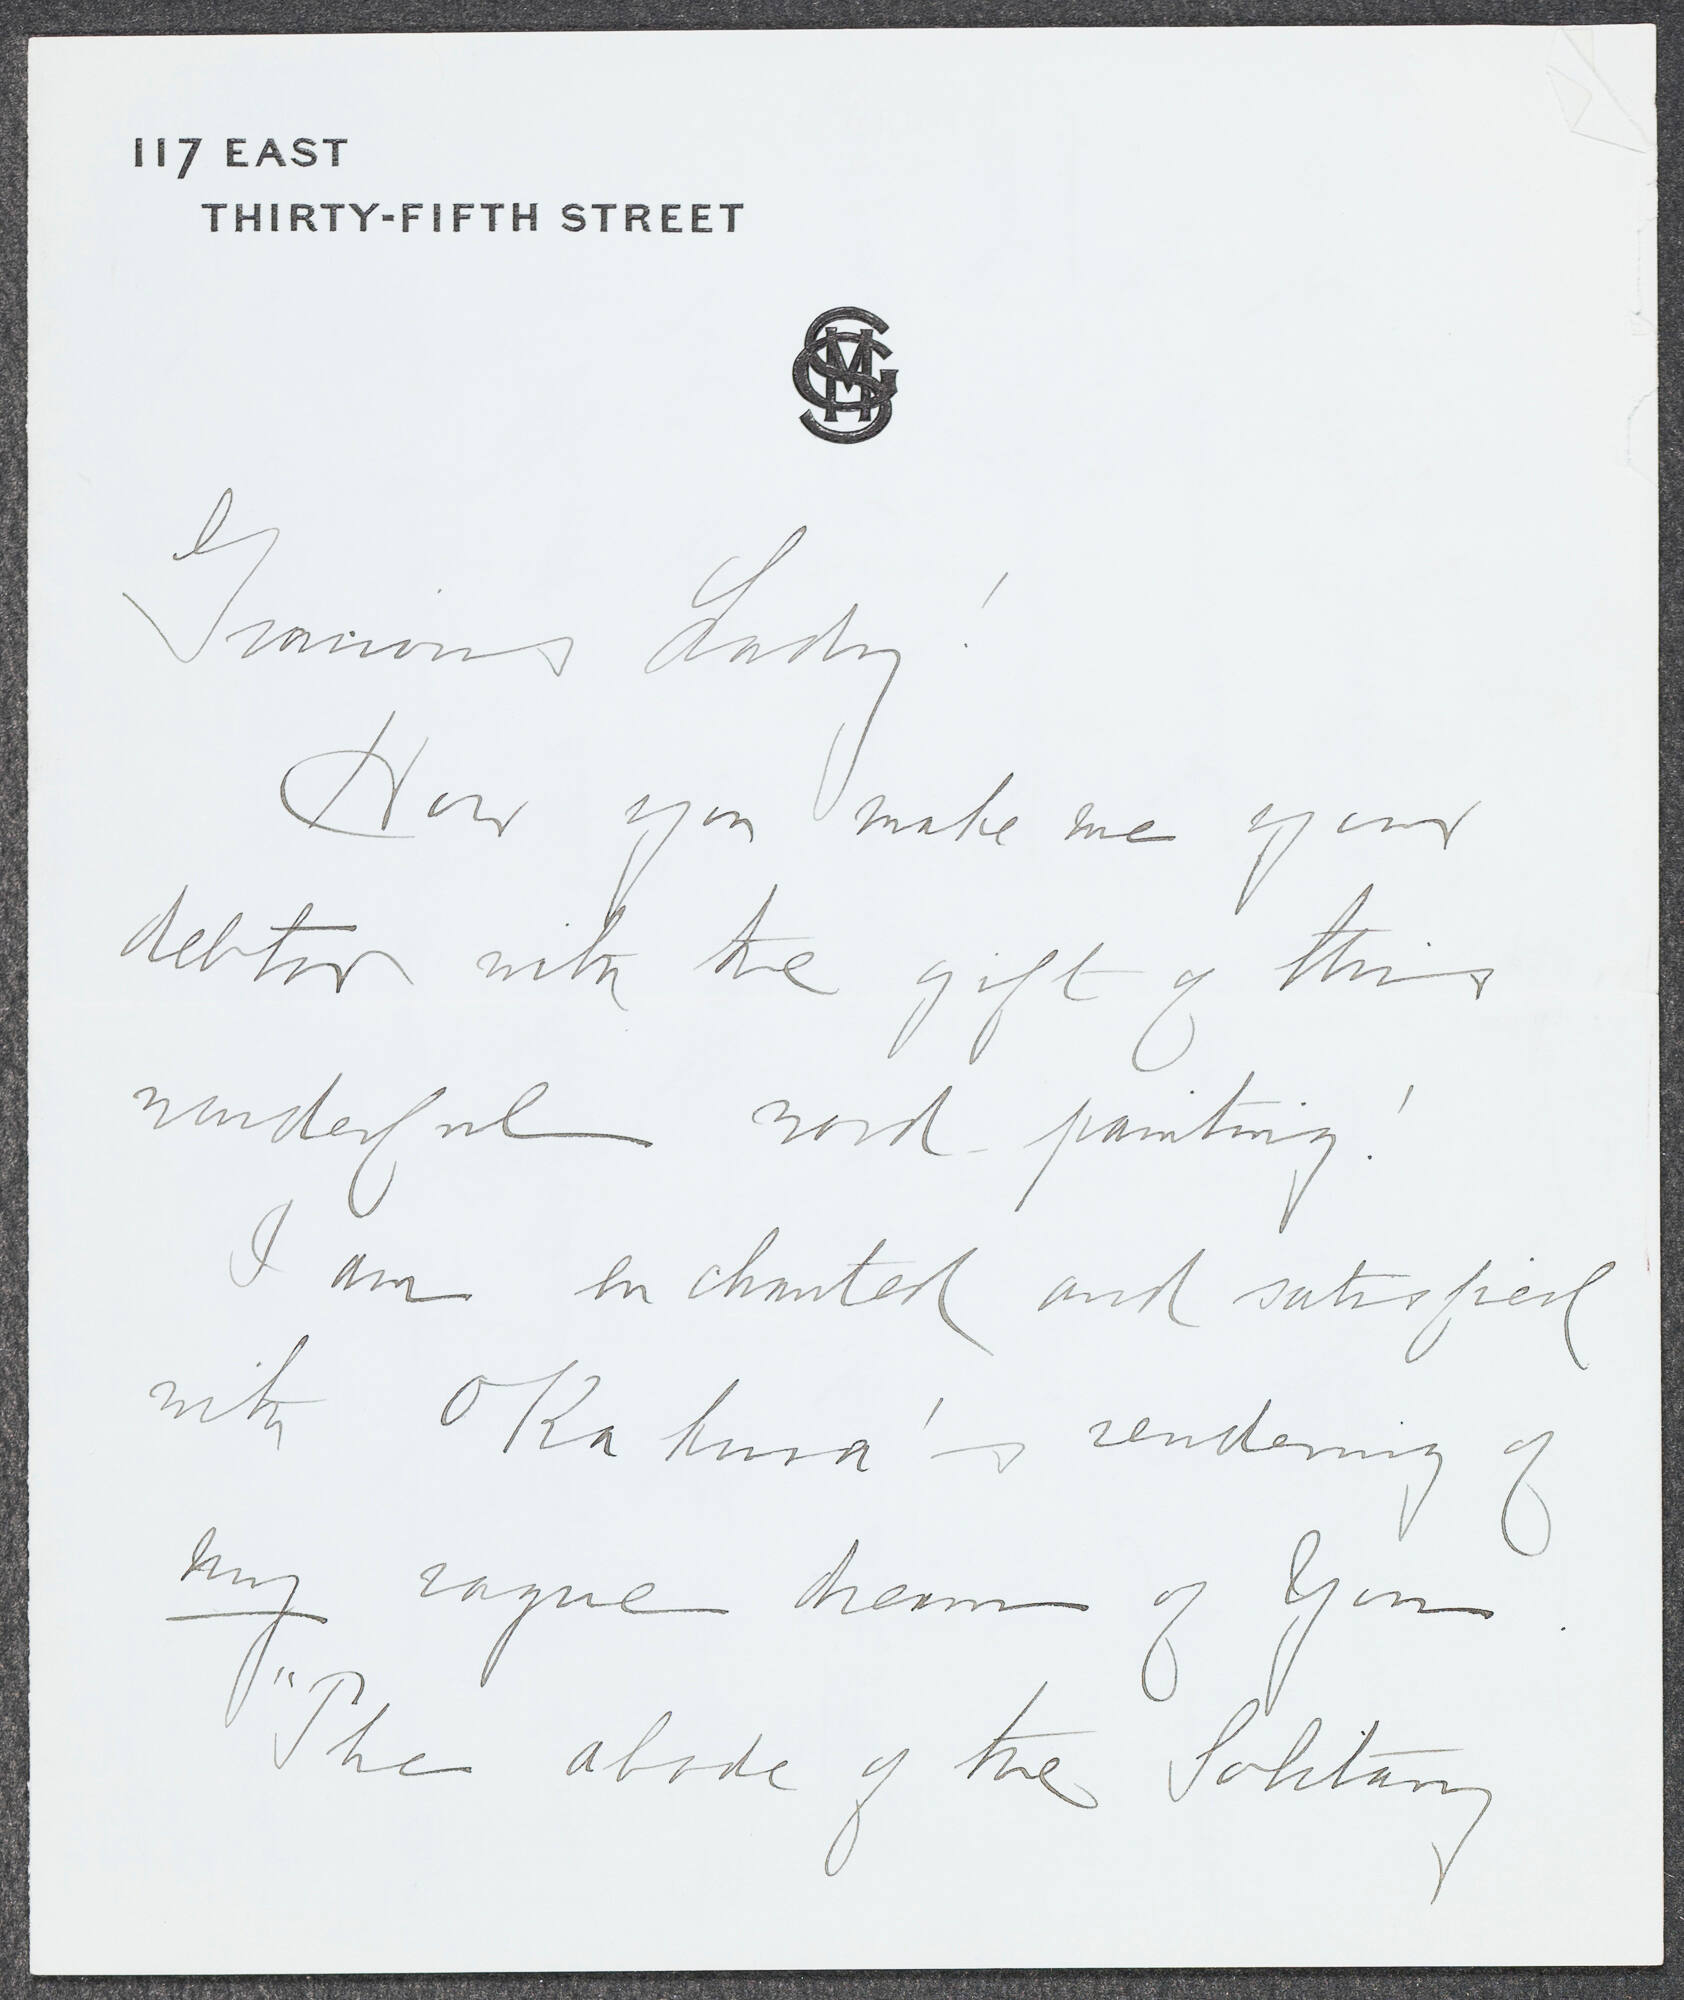 117 EAST
THIRTY-FIFTH STREET
Gracious Lady!
How you make me your
debtor with the gift of this
wonderful word-painting!
I am enchanted and satisfied
with OKakura's rendering of
my vague dream of You.
"The abode of the Solitary